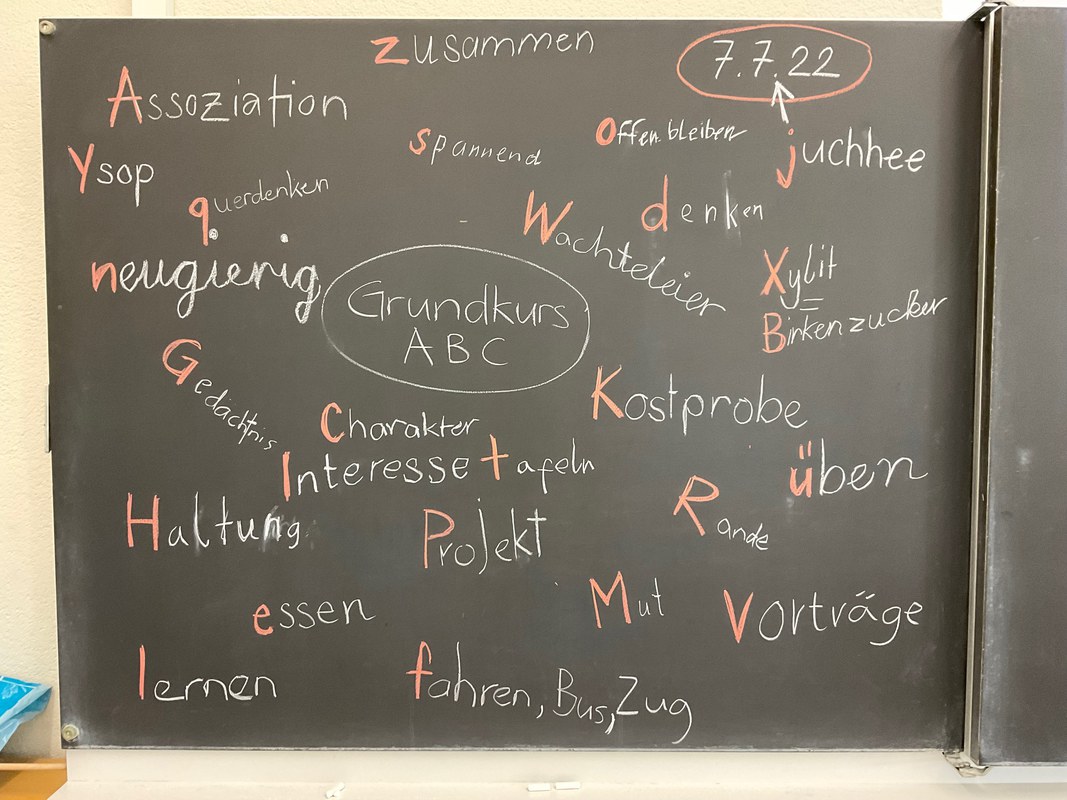 zusammen
7.7.22
Assoziation
Offen bleiben
juchhee
spannend
Ysop
querdenken
denken
Wachteleier
neugierig
Xylit
=
Birkenzucker
Grundkurs
ABC
Gedächtnis
Kostprobe
Charakter
Interesse tafeln
üben
Haltung
Projekt
Rande
essen
Mut
Vorträge
lernen
fahren, Bus, Zug